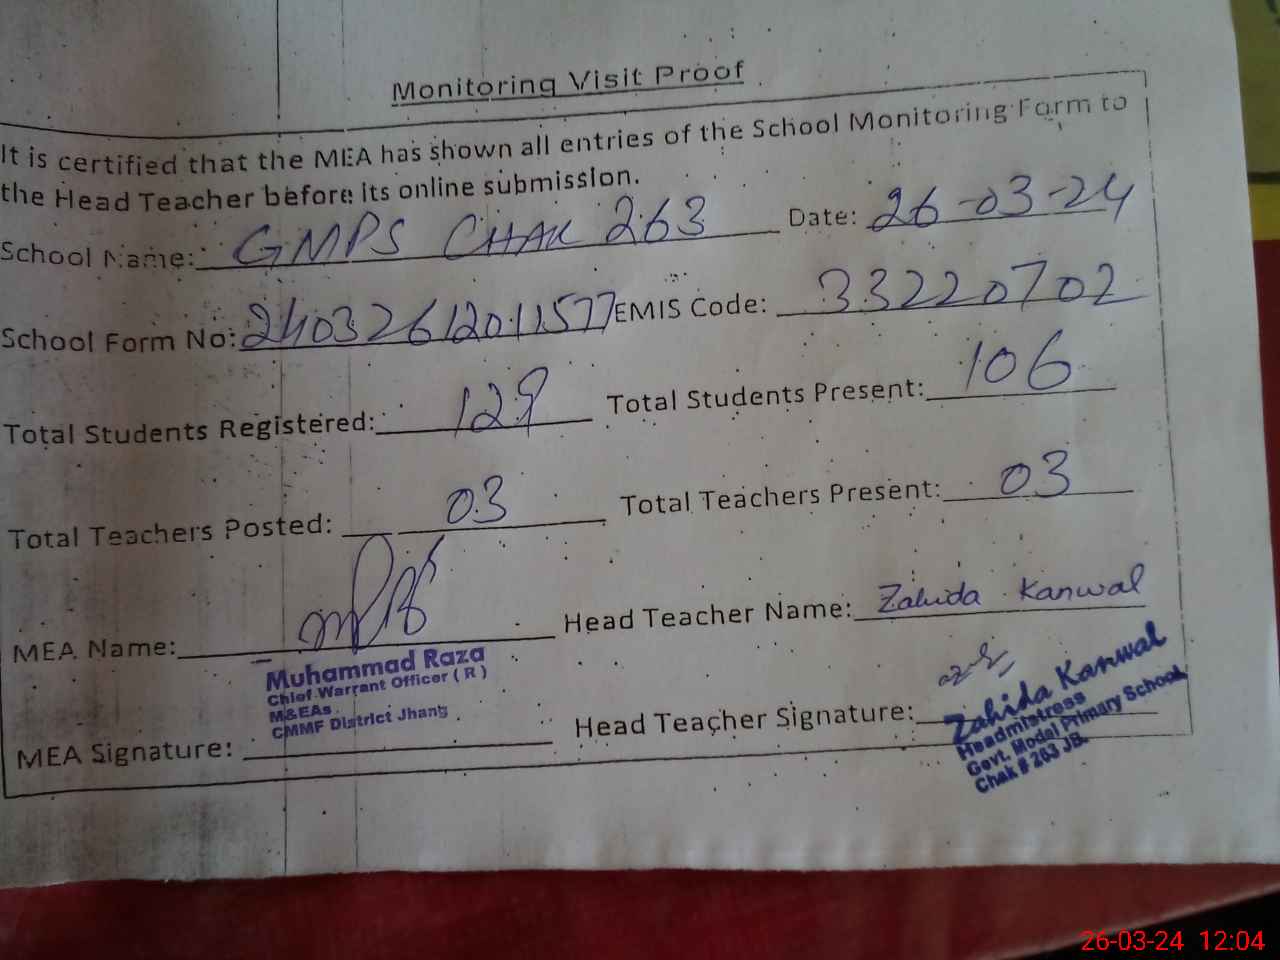 Monitoring Visit Proof
It is certified that the MEA has shown all entries of the School Monitoring Form to
the Head Teacher before its online submission.
School Name: GMPS CHAK 263 Date: 26-03-24
School Form No: 24032612011577 EMIS Code: 33220702
Total Students Registered: 129 Total Students Present: 106
Total Teachers Posted: 03 Total Teachers Present: 03
MEA Name: Head Teacher Name: Zahida Kanwal
Muhammad Raza
Chief Warrant Officer ( R )
M&EAs
CMMF District Jhang
MEA Signature: Head Teacher Signature:
Zahida Kanwal
Headmistress
Govt. Model Primary School
Chak # 263 JB.
26-03-24 12:04